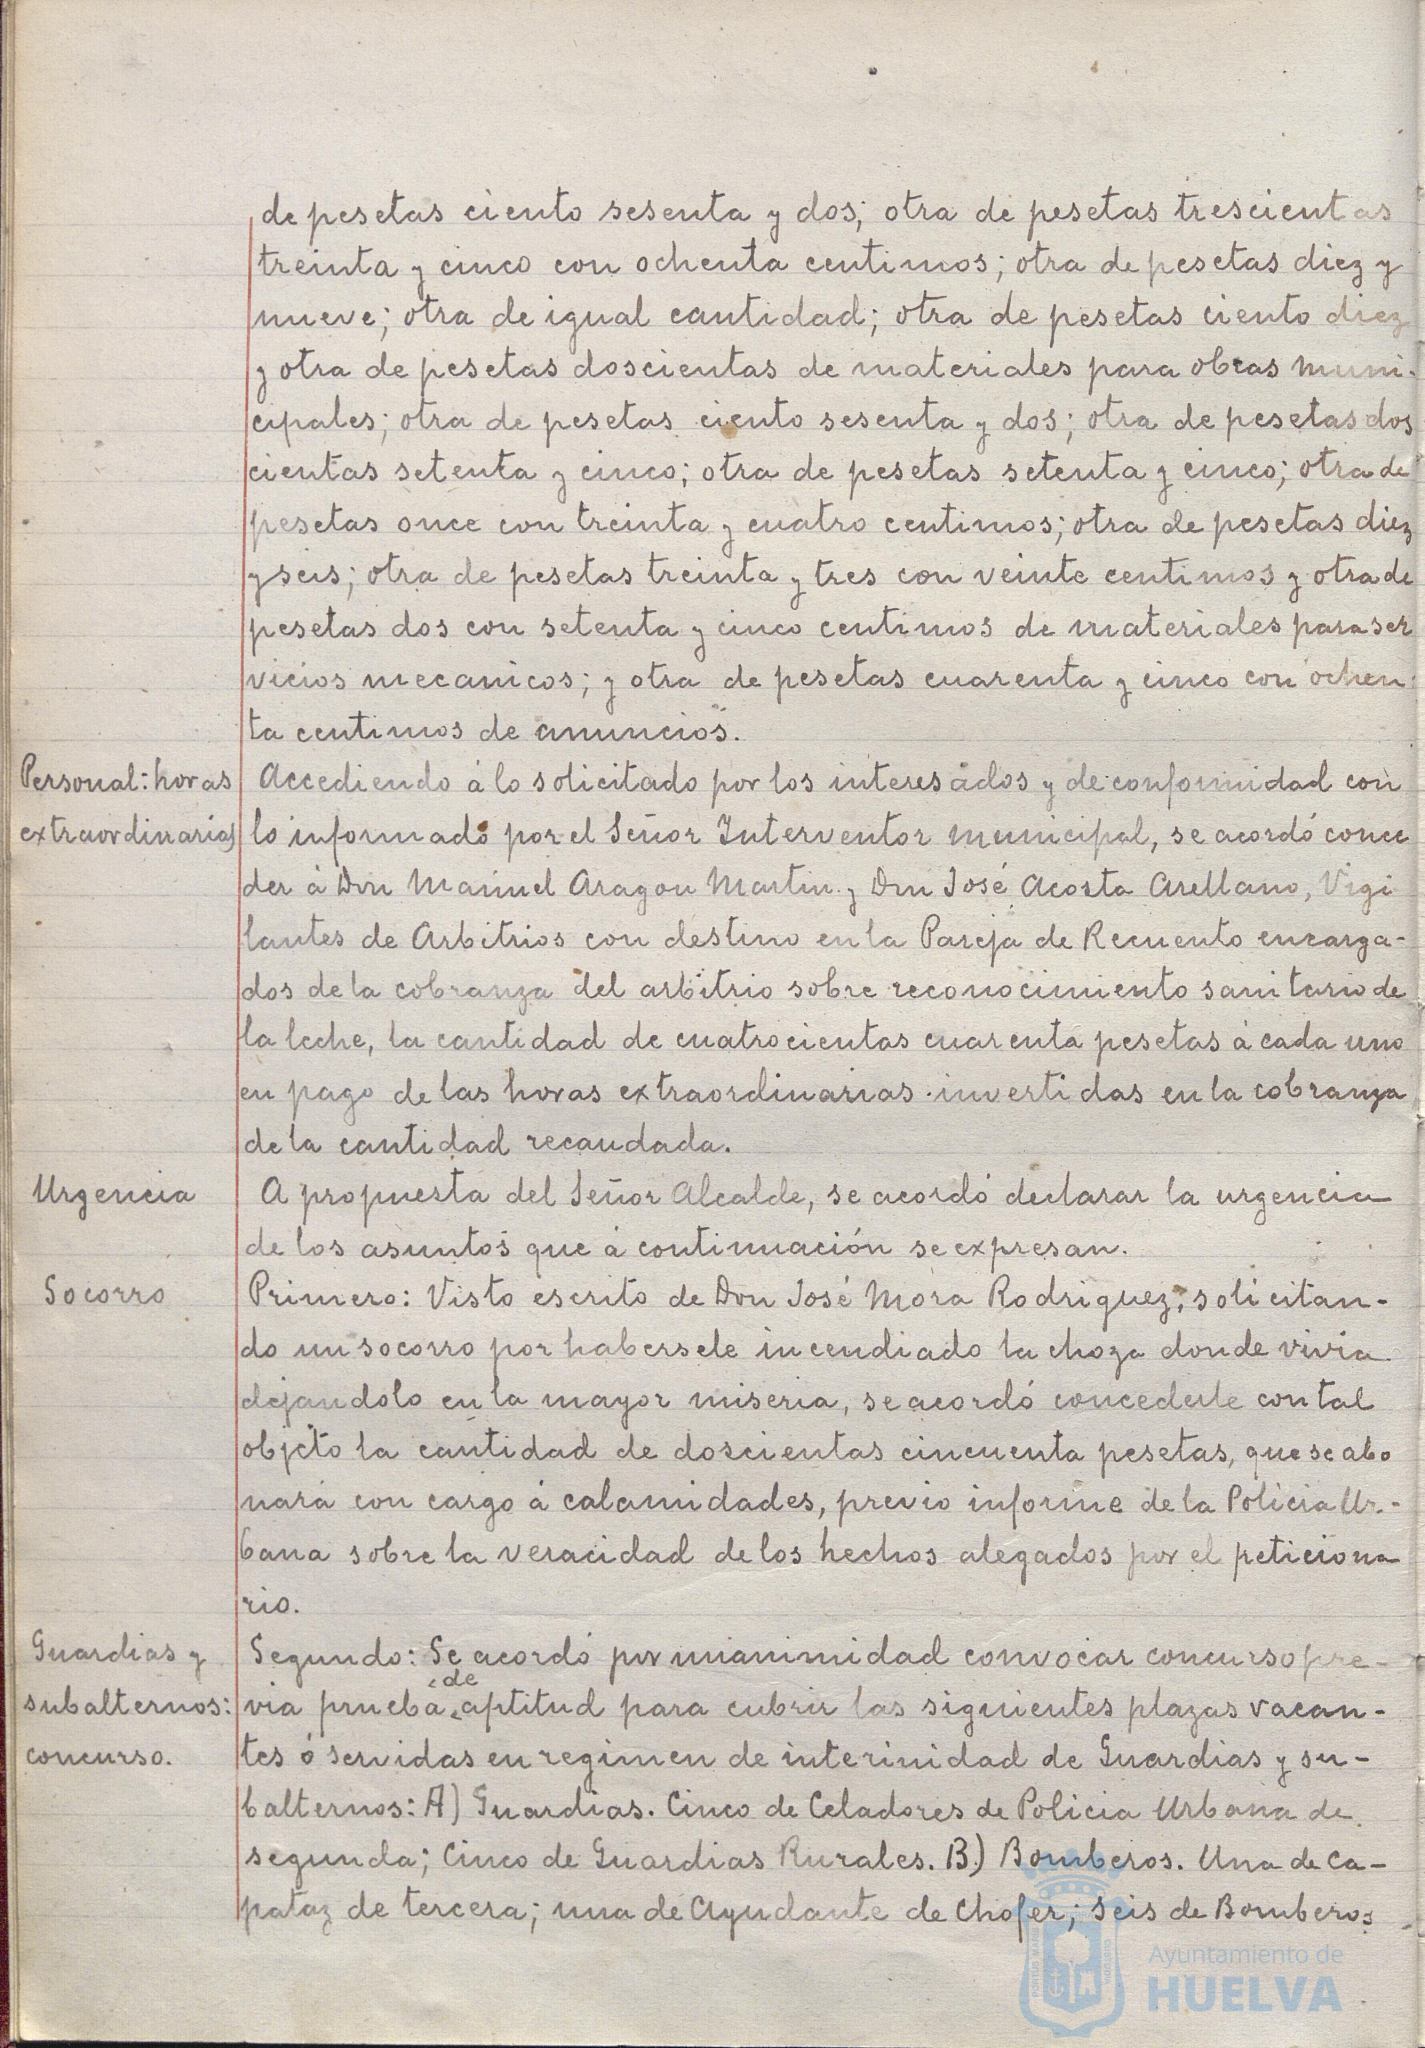 de pesetas ciento sesenta y dos; otra de pesetas trescientas
treinta y cinco con ochenta centimos; otra de pesetas diez y
nueve; otra de igual cantidad; otra de pesetas ciento diez
y otra de pesetas doscientas de materiales para obras muni-
cipales; otra de pesetas ciento sesenta y dos; otra de pesetas dos
cientas setenta y cinco; otra de pesetas setenta y cinco; otra de
pesetas once con treinta y cuatro centimos; otra de pesetas diez
y seis; otra de pesetas treinta y tres con veinte centimos y otra de
pesetas dos con setenta y cinco centimos de materiales para ser
vicios mecanicos; y otra de pesetas cuarenta y cinco con ochen-
ta centimos de anuncios.
Personal: horas
extraordinarias
Accediendo á lo solicitado por los interesados y de conformidad con
lo informado por el Señor Interventor municipal, se acordó conce
der á Don Manuel Aragon Martin y Don José Acosta Arellano, Vigi
lantes de Arbitrios con destino en la Pareja de Recuento encarga-
dos de la cobranza del arbitrio sobre reconocimiento sanitario de
la leche, la cantidad de cuatrocientas cuarenta pesetas á cada uno
en pago de las horas extraordinarias invertidas en la cobranza
de la cantidad recaudada.
Urgencia
A propuesta del Señor Alcalde, se acordó declarar la urgencia
de los asuntos que á continuación se expresan.
Socorro
Primero: Visto escrito de Don José Mora Rodriguez, solicitan-
do un socorro por habersele incendiado la choza donde vivia
dejandolo en la mayor miseria, se acordó concederle con tal
objeto la cantidad de doscientas cincuenta pesetas, que se abo
nará con cargo á calamidades, previo informe de la Policia Ur-
bana sobre la veracidad de los hechos alegados por el peticiona
rio.
Guardias y
subalternos:
concurso.
Segundo: Se acordó por unanimidad convocar concurso pre-
via prueba de aptitud para cubrir las siguientes plazas vacan-
tes ó servidas en regimen de interinidad de Guardias y su-
balternos: A) Guardias. Cinco de Celadores de Policia Urbana de
segunda; Cinco de Guardias Rurales. B.) Bomberos. Una de Ca-
pataz de tercera; una de Ayudante de Chofer; seis de Bomberos
Ayuntamiento de
HUELVA